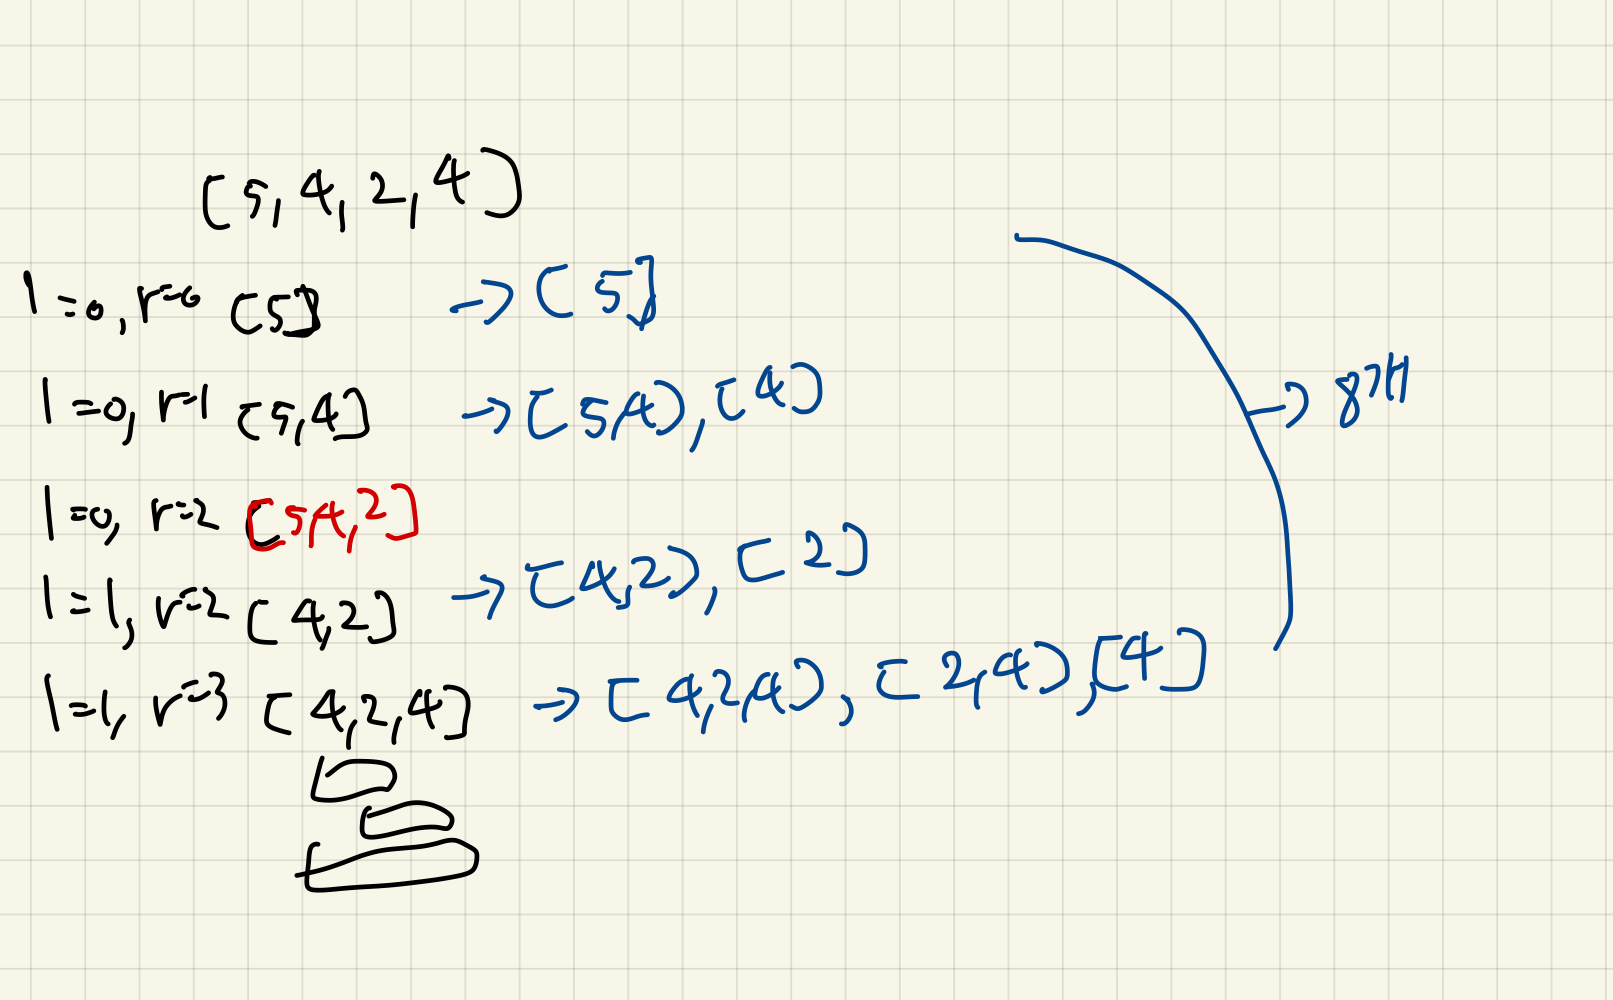 [5,4,2,4]
l=0, r=0 [5] → [5]
l=0, r=1 [5,4] → [5,4], [4]
l=0, r=2 [5,4,2]
l=1, r=2 [4,2] → [4,2], [2]
l=1, r=3 [4,2,4] → [4,2,4], [2,4], [4]
→ 8개